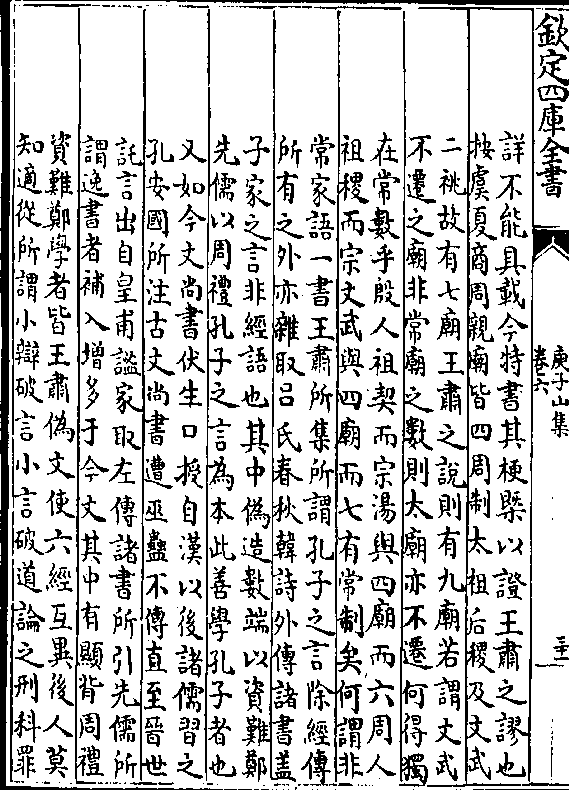 欽定四庫全書
庾子山集
卷六
二十一
詳不能具載今特書其梗槩以證王肅之謬也
按虞夏商周親廟皆四周制太祖后稷及文武
二祧故有七廟王肅之說則有九廟若謂文武
不遷之廟非常廟之數則太廟亦不遷何得獨
在常數乎殷人祖契而宗湯與四廟而六周人
祖稷而宗文武與四廟而七有常制矣何謂非
常家語一書王肅所集所謂孔子之言除經傳
所有之外亦雜取吕氏春秋韓詩外傳諸書盖
子家之言非經語也其中偽造數端以資難鄭
先儒以周禮孔子之言為本此善學孔子者也
又如今文尚書伏生口授自漢以後諸儒習之
孔安國所注古文尚書遭巫蠱不傳直至晉世
託言出自皇甫謐家取左傳諸書所引先儒所
謂逸書者補入增多于今文其中有顯背周禮
資難鄭學者皆王肅偽文使六經互異後人莫
知適從所謂小辯破言小言破道論之刑科罪